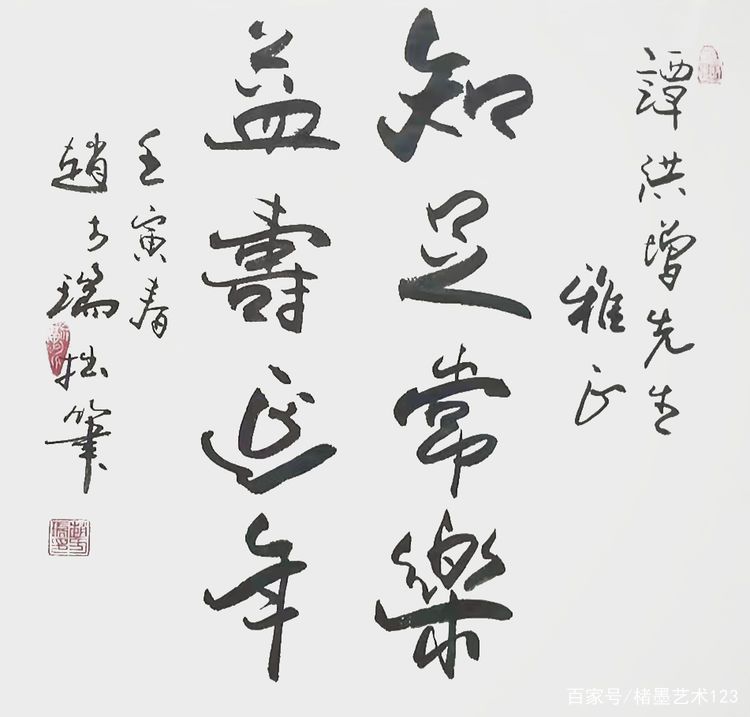 譚洪增先生
雅正
知足常樂
益壽延年
壬寅春
趙士瑞拙筆
百家号/楮墨艺术123